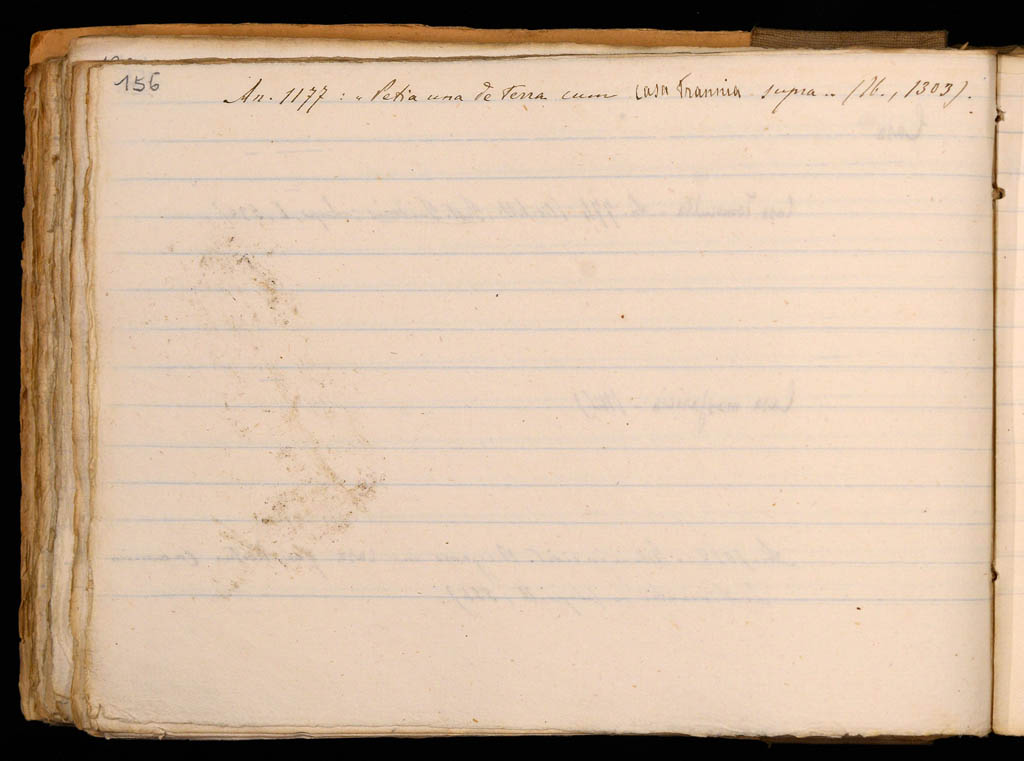 156
An. 1177 : « Petia una de terra cum casa Traninia supra » (Ib., 1303).